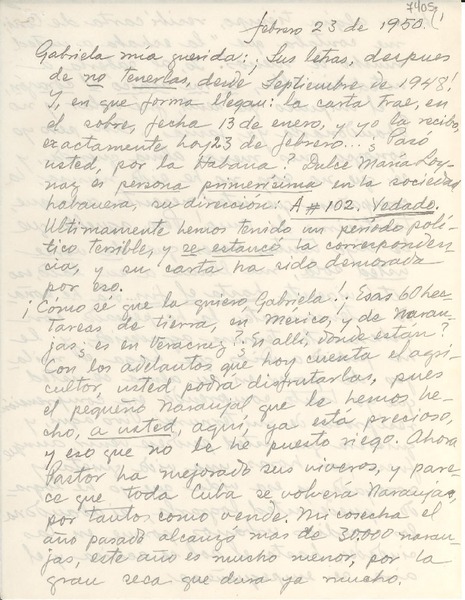 7405
febrero 23 de 1950. (1
Gabriela mía querida:¡Sus letras, despues
de no tenerlas, desde Septiembre de 1948!
Y, en que forma llegan: la carta trae, en
el sobre, fecha 13 de enero, y yo la recibo,
exactamente hoy 23 de febrero...¿Pasó
usted, por la Habana? Dulce María Loy-
naz es persona primerísima en la sociedad
habanera, su dirección: A # 102. Vedado.
Ultimamente hemos tenido un período polí-
tico terrible, y se estancó la corresponden-
cia, y su carta ha sido demorada
por eso.
¡Cómo sé que la quiero, Gabriela! ¡Esas 60 hec-
tareas de tierra, en México, y de naran-
jas; es en Veracruz? ¿Es alli, donde estan?
Con los adelantos que hoy cuenta el agri-
cultor, usted podrá disfrutarlas, pues
el pequeño Naranjal que le hemos he-
cho, a usted, aquí, ya está precioso,
y eso que no le he puesto riego. Ahora
Pastor ha mejorado sus viveros, y pare-
ce que toda Cuba se volvera Naranjas,
por tantos como vende. Mi cosecha el
año pasado alcanzó mas de 30.000 naran-
jas, este año es mucho menor, por la
gran seca que dura ya mucho.